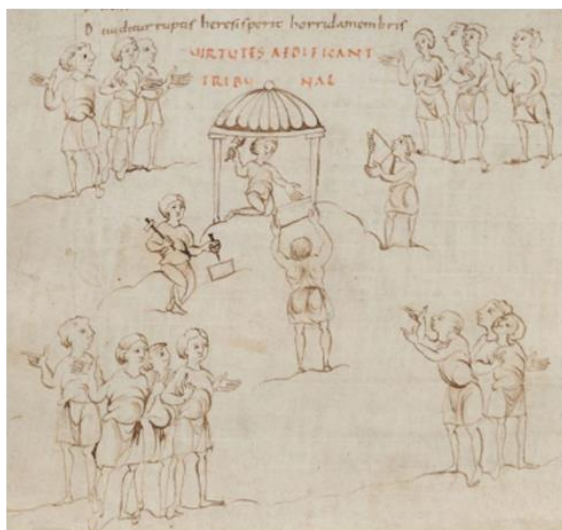 D iuiditur ruptis heresis perit horrida membris
UIRTUTES AEDIFICANT
TRIBU NAL